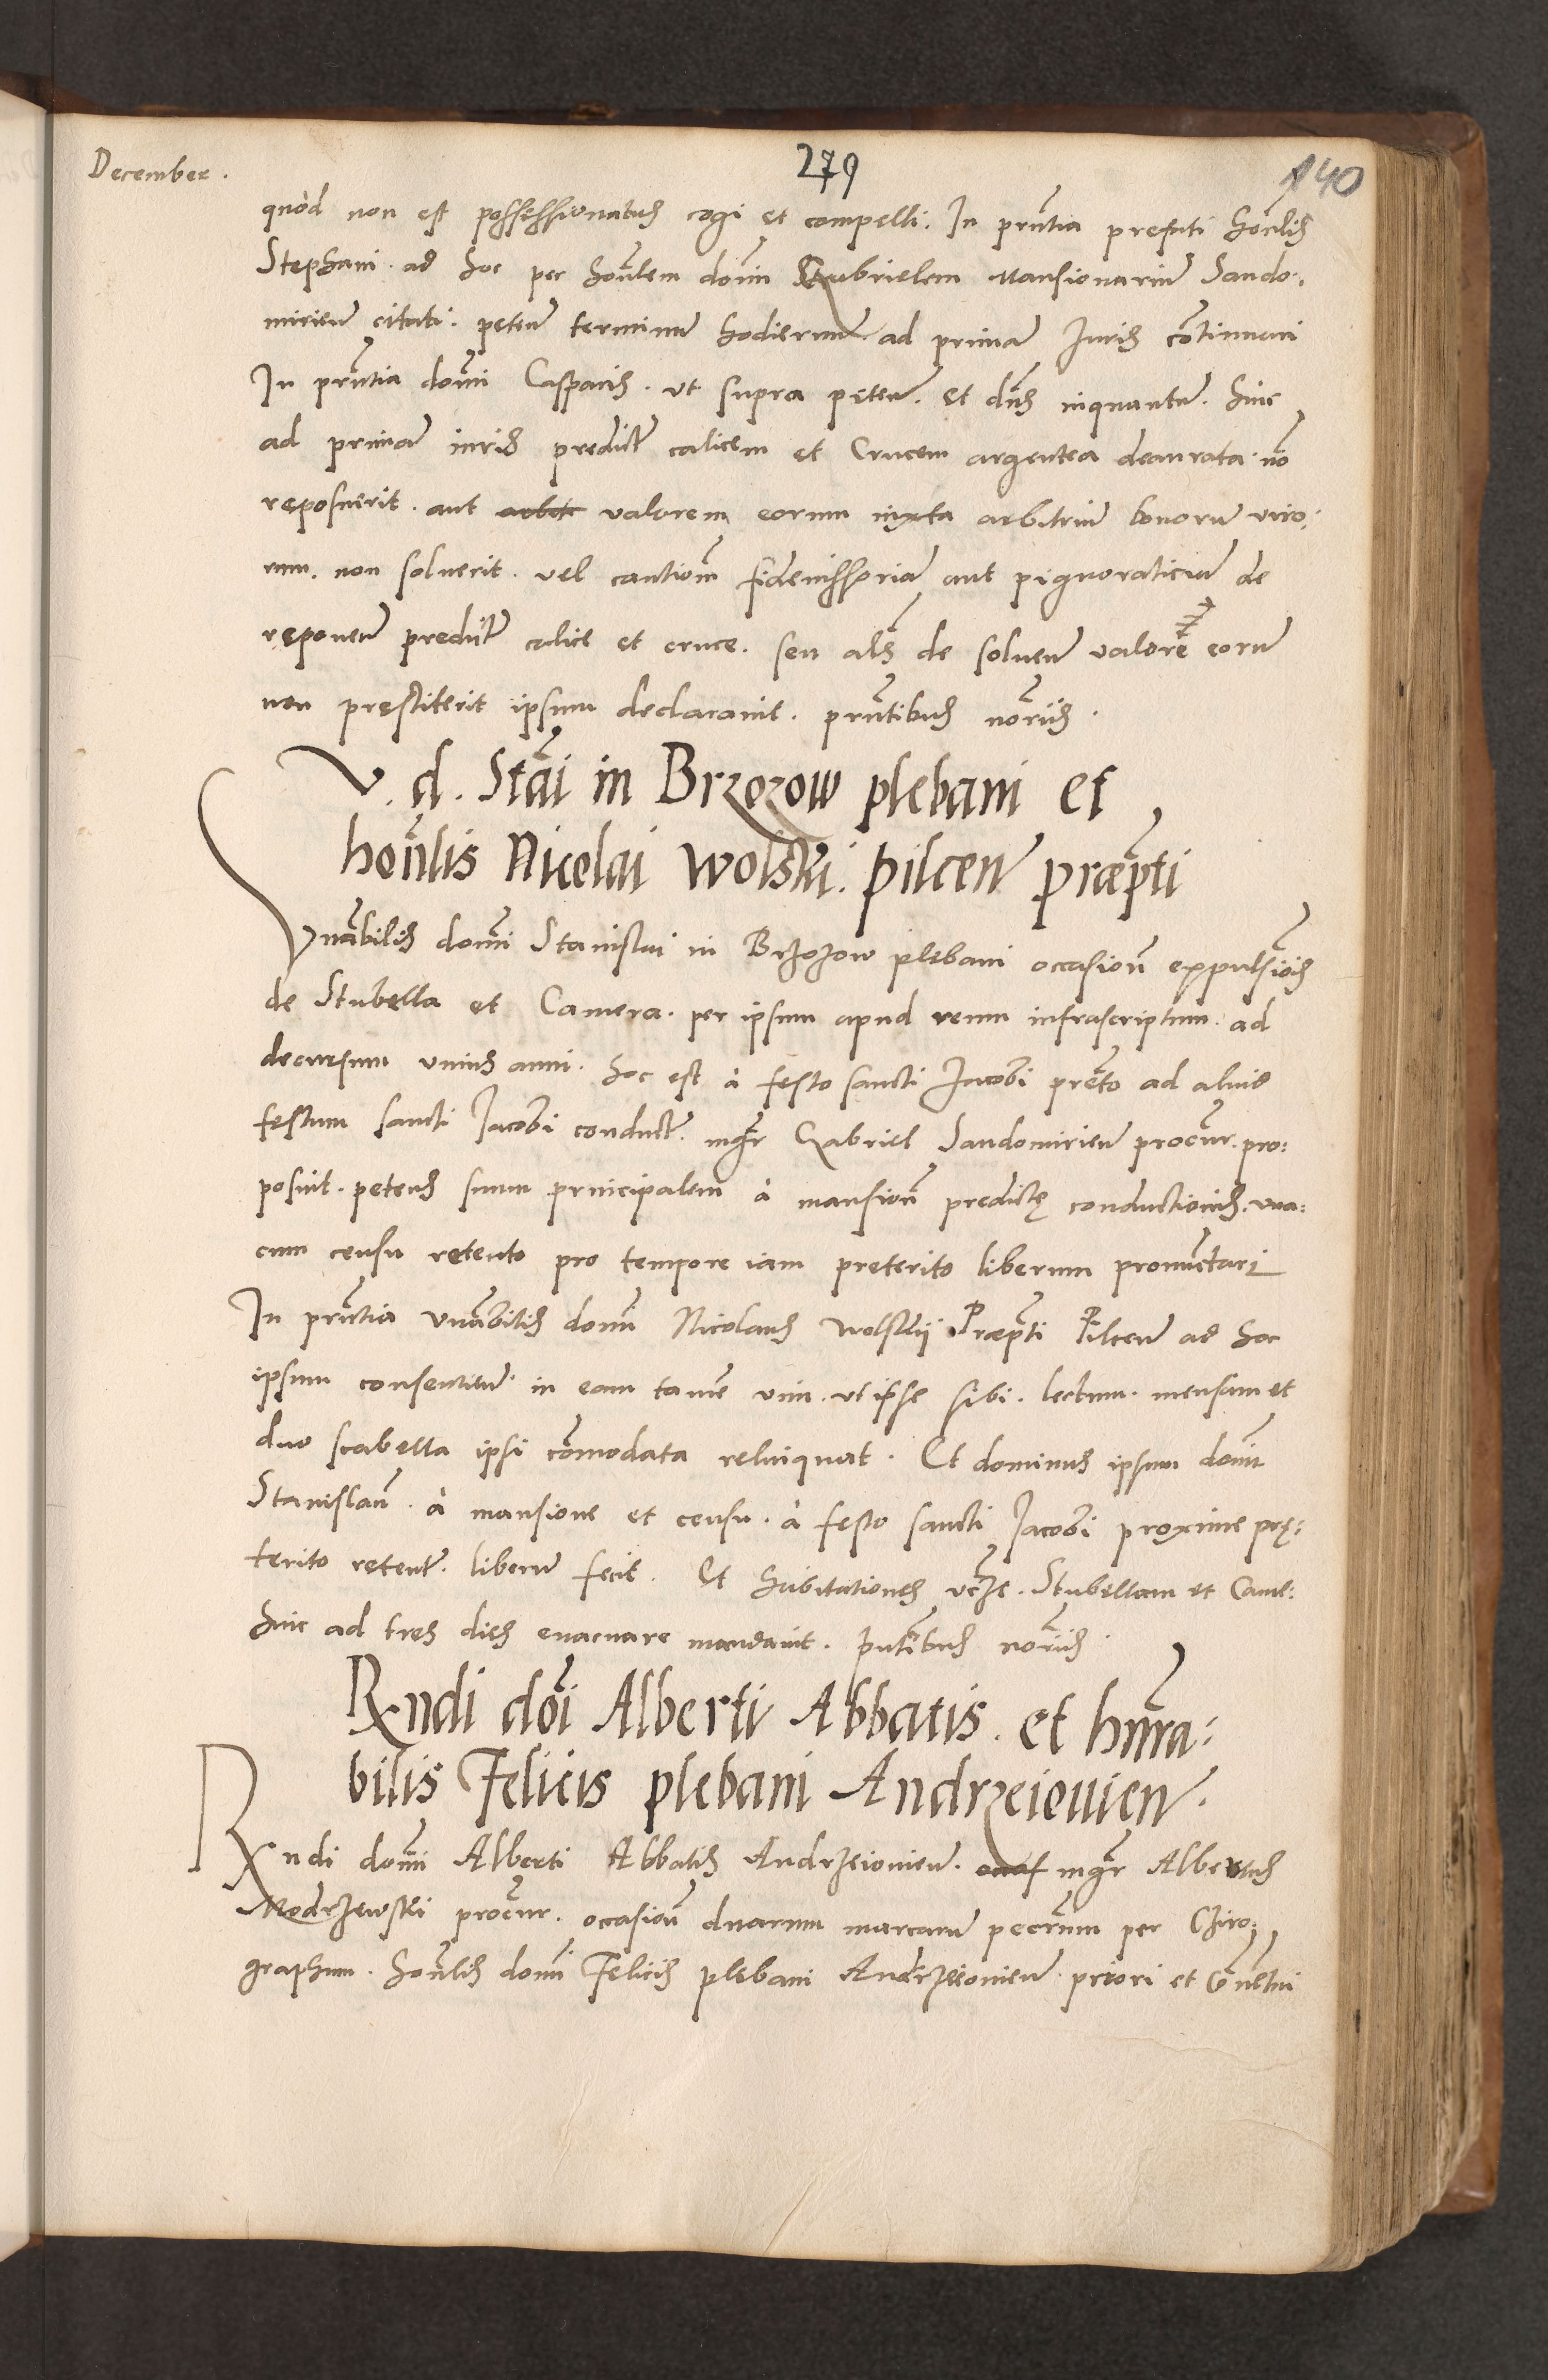 December.
279
140
quod non est possessionatus cogi et compelli. In prñtia prefati hoñlis
Stephani. ad hoc per hoñlem domĩ Gabrielem Mansionariũ Sando:
mirieñ citati. petent terminũ hodiernũ ad primã Juris cõtinuari
In prñtia domĩ Casparis. ut supra peteñ. et dñs inquantũ. hinc
ad primã iuris predict calicem et Crucem argentea deaurata nõ
reposuerit. aut valorem eorum iuxta arbitriũ bonorũ viro:
rum. non soluerit. vel cautiom̃ fideiussoriã aut pignoraticiã de
reponeñ predict calice et cruce. seu als̃ de solueñ valore eorũ
non prestiterit ipsum declarauit. prñtibus nor̃ijs.
V. d. Stãi in Brzozow plebani et
hoñlis Nicolai Wolski. Pilceñ præp̃ti
Vnãbilis domĩ Stanislai in Brzozow plebani occasioñ expulsiõis
de Stubella et Camera. per ipsum apud reum infrascriptum. ad
decursum vnius anni. hoc est à festo sancti Jacobi prento ad aliud
festum sancti Jacobi conduct. mgr̃ Gabriel Sandomirieñ procur̃. pro:
posuit. petens suum principalem à mansioñ predictę conductionis. vna:
cum censu retento pro tempore iam preterito liberum pronunctari
In prñtia vnãbilis domĩ Nicolaus Wolskij Præp̃ti Pilceñ ad hoc
ipsum consentieñ. in eam tamẽ vim. vt ipse sibi. lectum. mensam et
duo scabella ipsi cõmodata relinquat. Et dominus ipsum domĩ
Stanislaũ. à mansione et censu. à festo sancti Jacobi proxime prę:
terito retent. liberũ fecit. Et habitationes vcz̃t. Stubellam et Came:
hinc ad tres dies euacuare mandauit. pñtibus nor̃ijs.
Rndi doĩ Alberti Abbatis. et hnr̃a:
bilis Felicis plebani Andrzeiouieñ.
Rndi domĩ Alberti Abbatis Andrzeiouieñ. mgr̃ Albertus
Modrzewski procur̃. occasioñ duarum marcarũ pecr̃um per Chiro:
graphum. hoñlis domĩ Felicis plebani Andrzeiouieñ. priori et Cõuẽtui